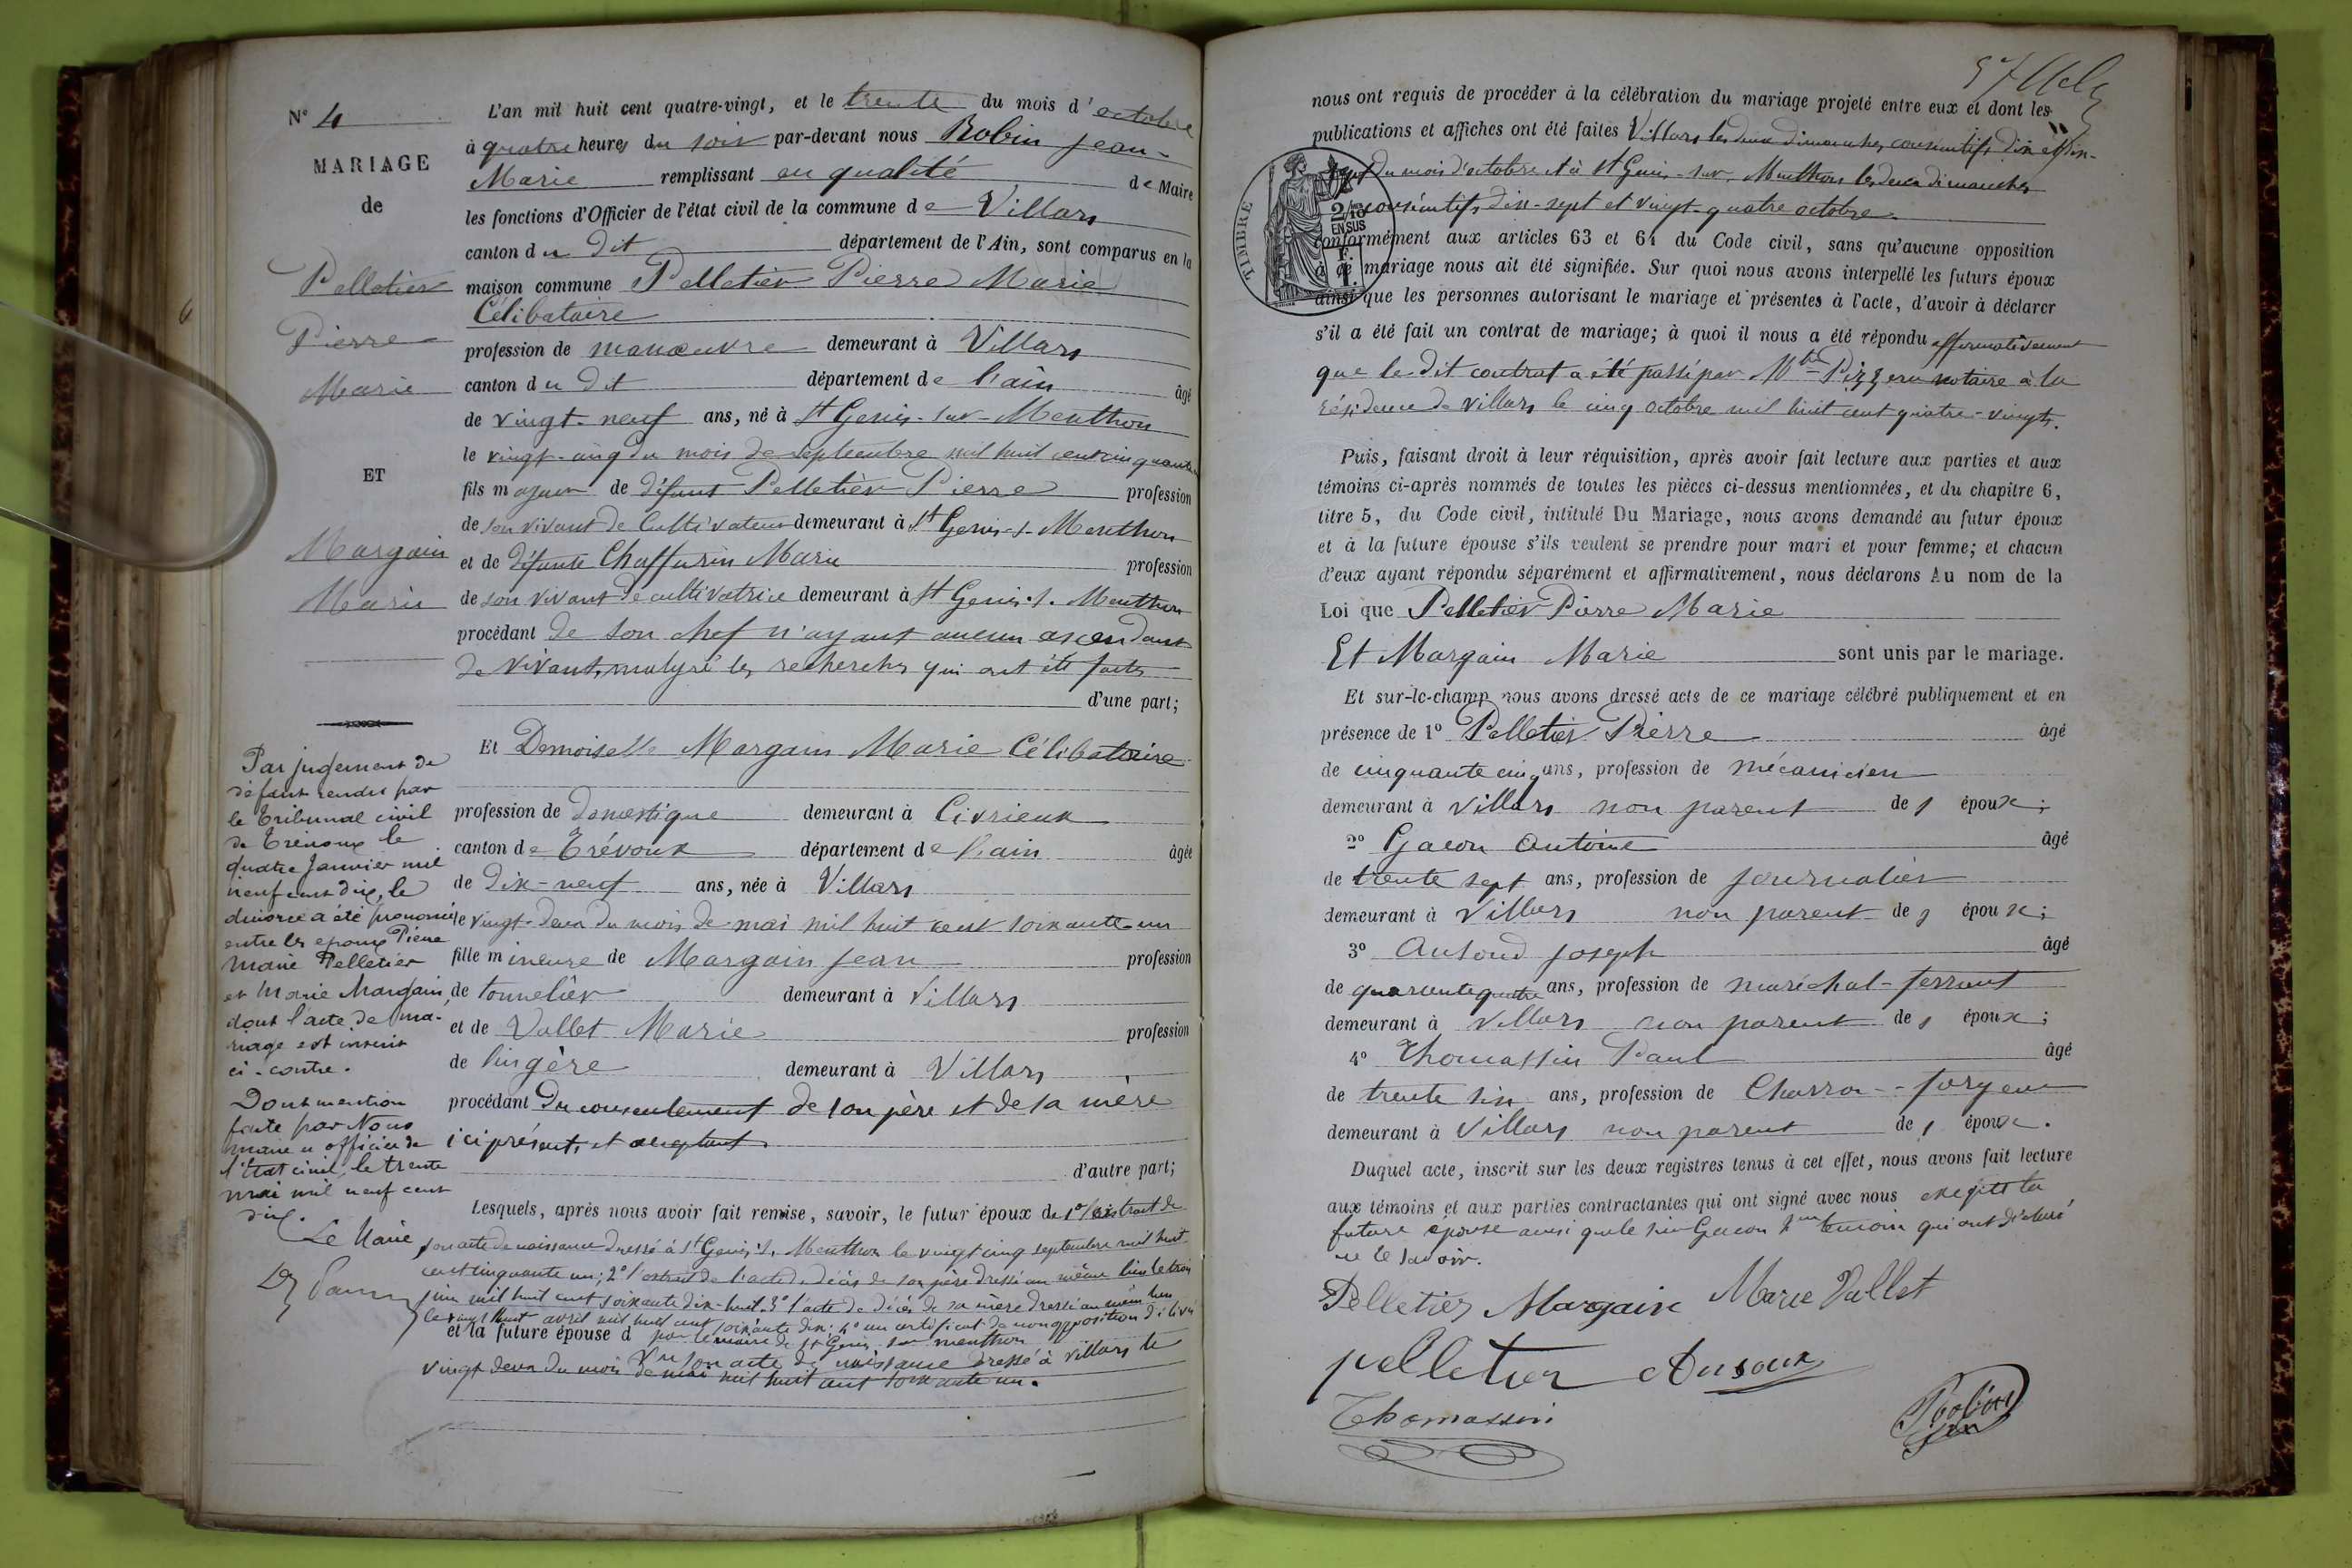 N° 4
MARIAGE
de
Pelletier
Pierre
Marie
ET
Margain
Marie
Par jugement de
défaut rendu par
le Tribunal civil
de Trévoux le
quatre Janvier mil
neuf cent dix, le
divorce a été prononcé
entre les époux Pierre
Marie Pelletier
et Marie Margain,
dont l'acte de ma-
riage est inscrit
ci-contre.
Dont mention
faite par Nous
maire et officier de
l'Etat civil, le trente
mai mil neuf cent
dix.
Le Maire,
L'an mil huit cent quatre-vingt, et le trente du mois d'octobre
à quatre heures du soir par-devant nous Robin Jean-
Marie remplissant en qualité de Maire
les fonctions d'Officier de l'état civil de la commune de Villars
canton du dit département de l'Ain, sont comparus en la
maison commune Pelletier Pierre Marie
Célibataire
profession de manœuvre demeurant à Villars
canton du dit département de l'ain âgé
de vingt-neuf ans, né à St Genis-sur-Menthon
le vingt-cinq du mois de septembre mil huit cent cinquante
fils majeur de défunt Pelletier Pierre profession
de son vivant de Cultivateur demeurant à St Genis-s-Menthon
et de défunte Chaffurin Marie profession
de son vivant de cultivatrice demeurant à St Genis-s. Menthon
procédant de son chef n'ayant aucun ascendant
de vivant, malgré les recherches qui ont été faites
d'une part;
Et Demoiselle Margain Marie Célibataire
profession de domestique demeurant à Civrieux
canton de Trévoux département de l'ain âgée
de dix-neuf ans, née à Villars
le vingt-deux du mois de mai mil huit cent soixante-un
fille mineure de Margain Jean profession
de tonnelier demeurant à Villars
et de Vallet Marie profession
de lingère demeurant à Villars
procédant du consentement de son père et de sa mère
ici présents et acceptant
d'autre part;
Lesquels, après nous avoir fait remise, savoir, le futur époux de 1° l'extrait de
son acte de naissance dressé à St Genis-s. Menthon le vingt cinq septembre mil huit
cent cinquante un; 2° l'extrait de l'acte de décès de son père dressé au même lieu le trois
juin mil huit cent soixante dix-huit. 3° l'acte de décès de sa mère dressé au même lieu
le vingt huit avril mil huit cent soixante dix. 4° un certificat de non opposition délivré
par le maire de St Genis sur menthon
et la future épouse d'un son acte de naissance dressé à Villars le
vingt deux du mois de mai mil huit cent soixante un.
nous ont requis de procéder à la célébration du mariage projeté entre eux et dont les
publications et affiches ont été faites Villars les deux dimanches consécutifs dix et dix-
sept du mois d'octobre et à St Genis-sur-Menthon les deux dimanches
consécutifs dix-sept et vingt-quatre octobre.
TIMBRE
2/10
EN SUS
1 F.
conformément aux articles 63 et 64 du Code civil, sans qu'aucune opposition
à ce mariage nous ait été signifiée. Sur quoi nous avons interpellé les futurs époux
ainsi que les personnes autorisant le mariage et présentes à l'acte, d'avoir à déclarer
s'il a été fait un contrat de mariage; à quoi il nous a été répondu affirmativement
que le dit contrat a été passé par Mtre Pizzera notaire à la
résidence de Villars le cinq octobre mil huit cent quatre-vingts.
Puis, faisant droit à leur réquisition, après avoir fait lecture aux parties et aux
témoins ci-après nommés de toutes les pièces ci-dessus mentionnées, et du chapitre 6,
titre 5, du Code civil, intitulé Du Mariage, nous avons demandé au futur époux
et à la future épouse s'ils veulent se prendre pour mari et pour femme; et chacun
d'eux ayant répondu séparément et affirmativement, nous déclarons Au nom de la
Loi que Pelletier Pierre Marie
Et Margain Marie sont unis par le mariage.
Et sur-le-champ nous avons dressé acte de ce mariage célébré publiquement et en
présence de 1° Pelletier Pierre âgé
de cinquante cinq ans, profession de mécanicien
demeurant à Villars non parent des époux;
2° Gacon Antoine âgé
de trente sept ans, profession de journalier
demeurant à Villars non parent des époux;
3° Ansoud Joseph âgé
de quarante quatre ans, profession de maréchal-ferrant
demeurant à Villars non parent des époux;
4° Thomassin Paul âgé
de trente six ans, profession de Charron-forgeur
demeurant à Villars non parent des époux.
Duquel acte, inscrit sur les deux registres tenus à cet effet, nous avons fait lecture
aux témoins et aux parties contractantes qui ont signé avec nous excepté la
future épouse ainsi que le sieur Gacon 2me témoin qui ont déclaré
ne le savoir.
Pelletier Margain Marie Vallet
pelletier Ansoux
Thomassin
Robin